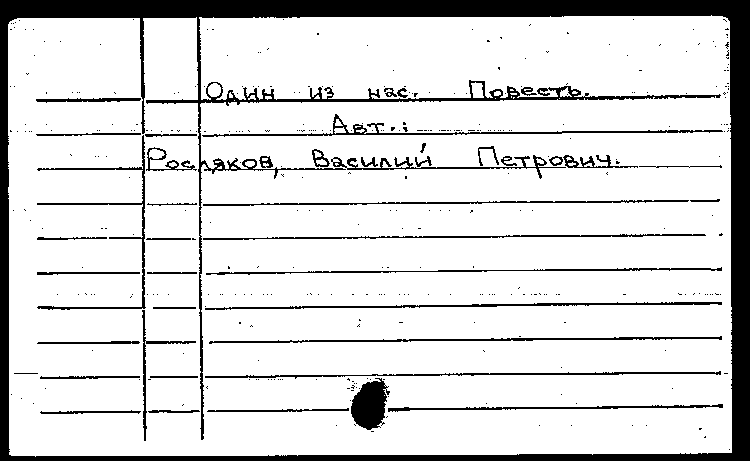 Один из нас. Повесть.
Авт.:
Росляков, Василий Петрович.